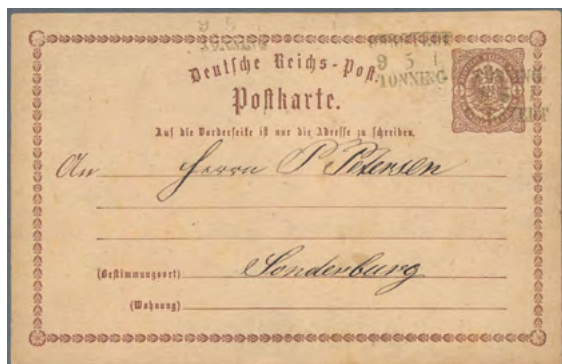 9 5 1
TÖNNING
Deutsche Reichs-Post.
Postkarte.
Auf die Vorderseite ist nur die Adresse zu schreiben.
An Herrn P Petersen
(Bestimmungsort) Sonderburg
(Wohnung)